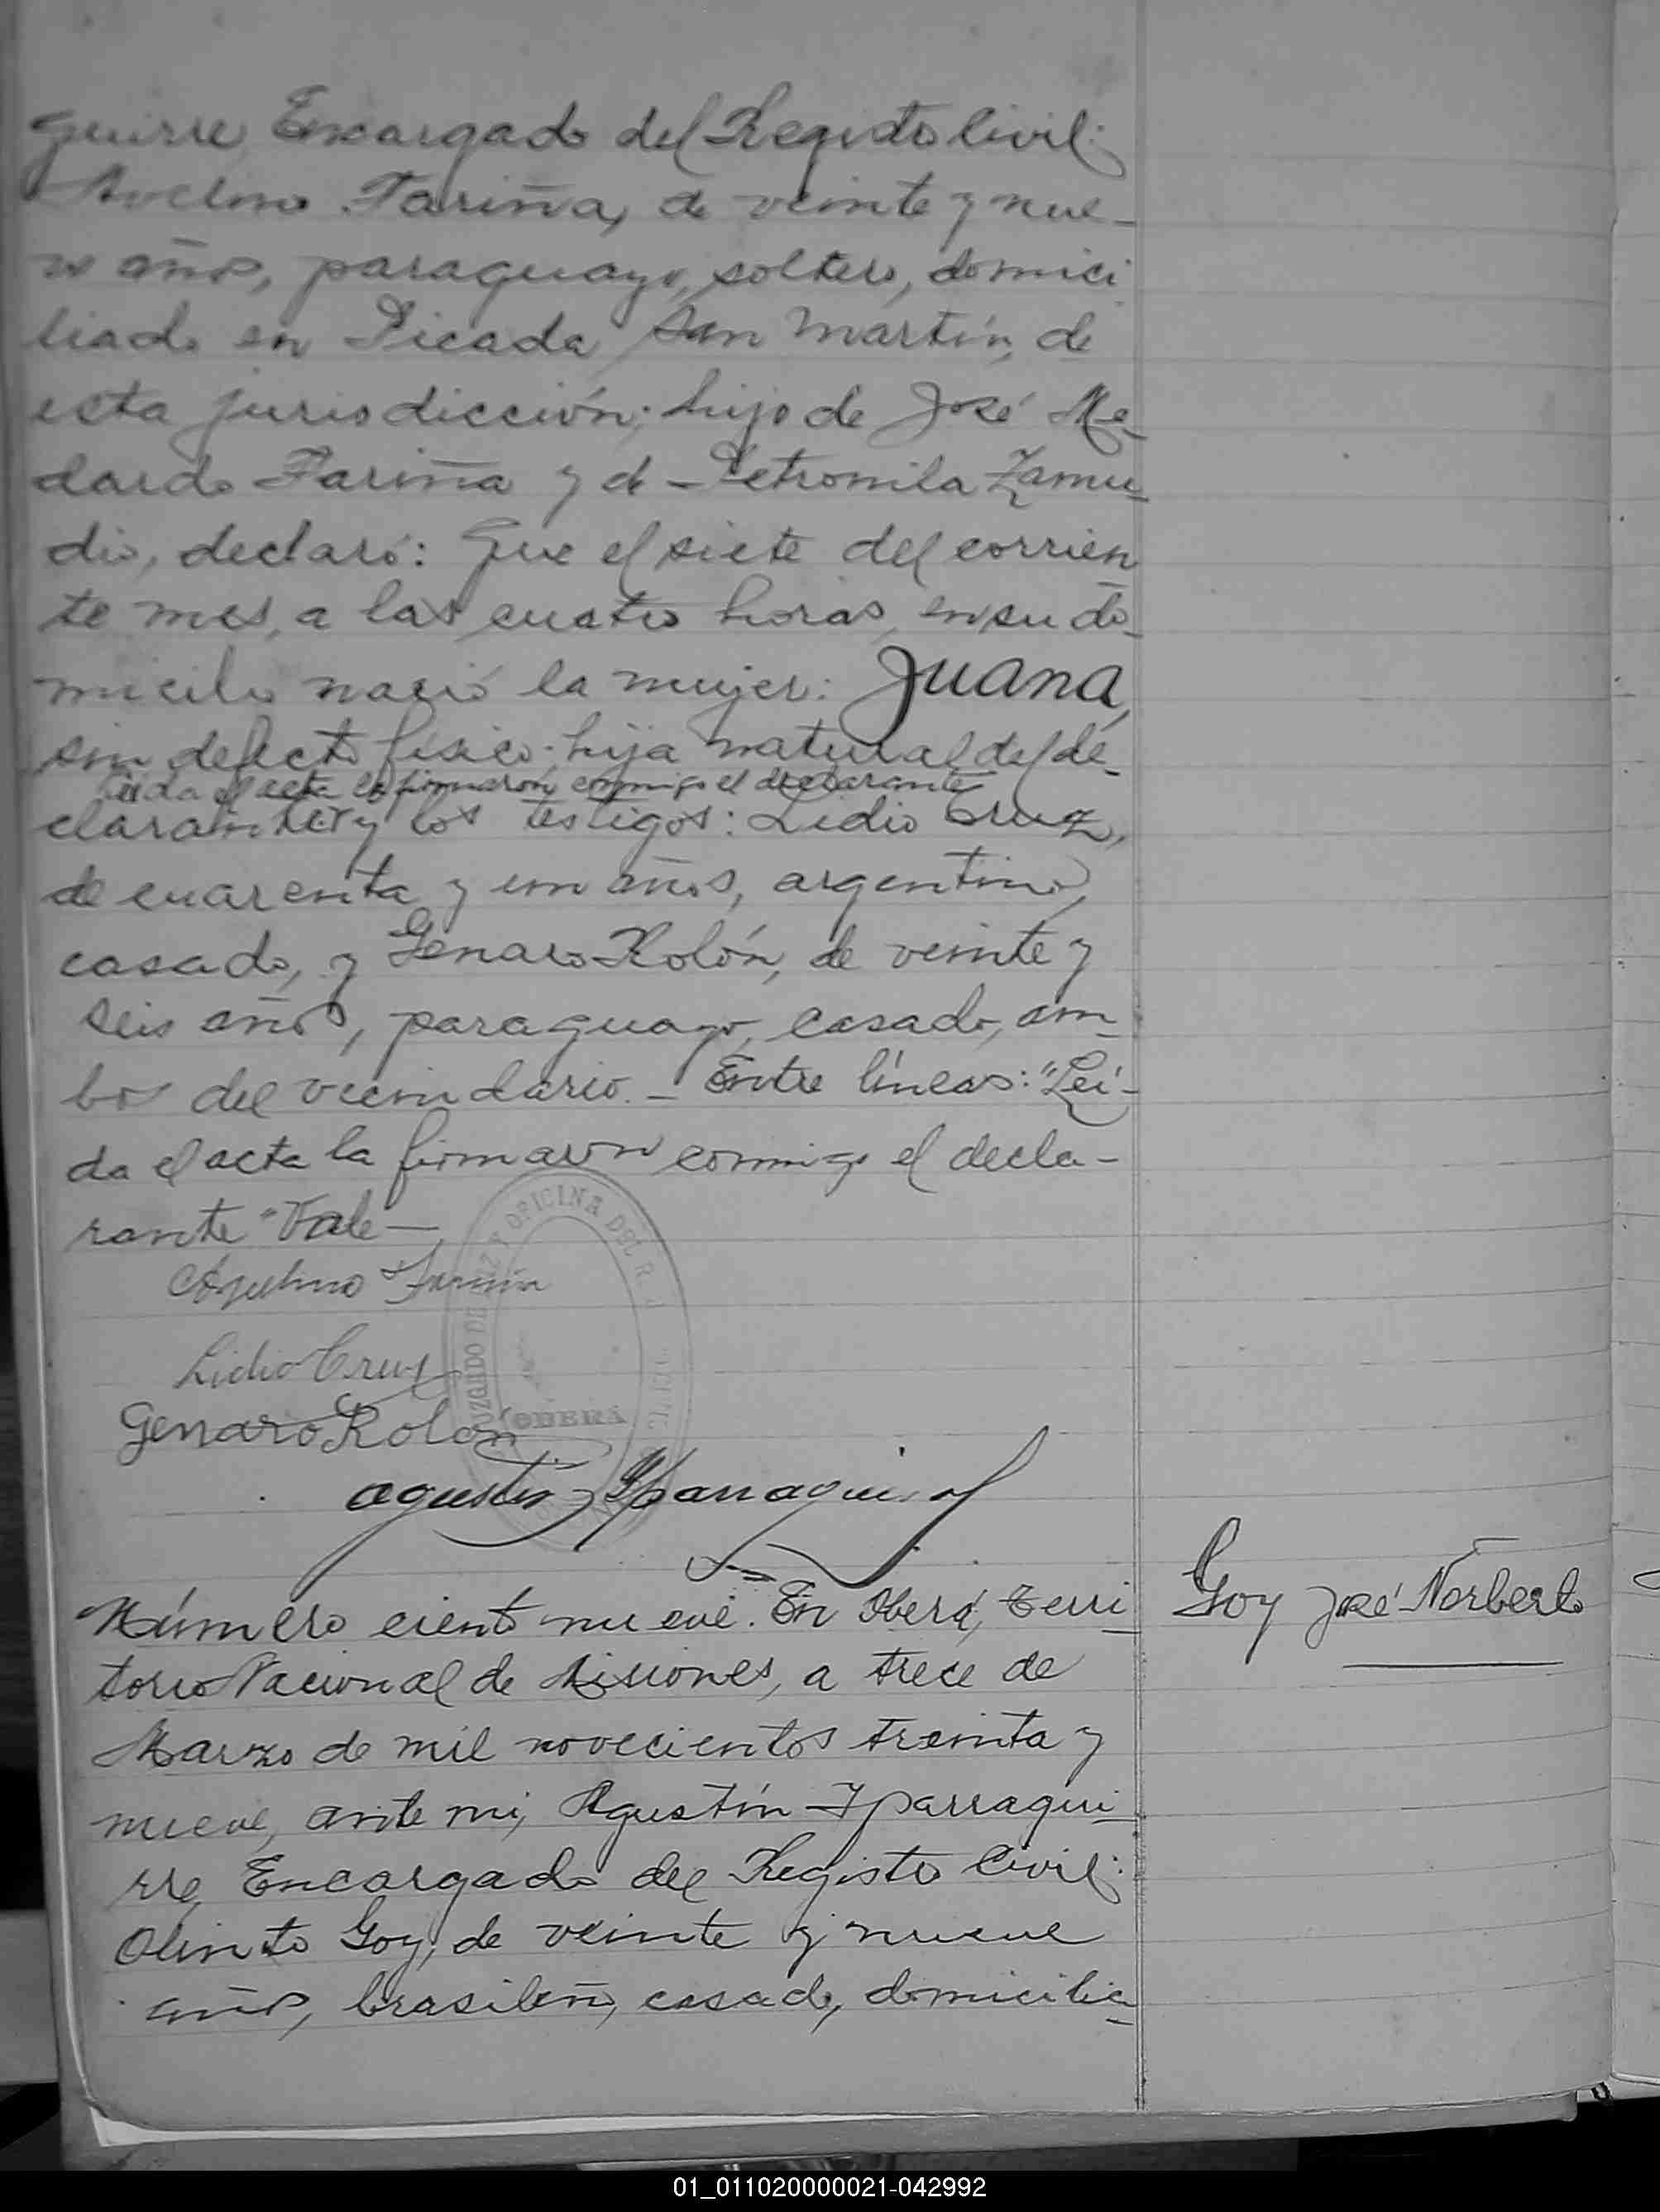 guirre, Encargado del Registro Civil:
Avelino Fariña, de veinte y nue-
ve años, paraguayo, soltero, domici
liado en Picada San Martín, de
esta jurisdicción; hijo de José Me-
dardo Fariña y de Petronila Zamu-
dio, declaró: Que el siete del corrien
te mes, a las cuatro horas, en su do-
micilio nació la mujer: Juana,
sin defecto físico; hija natural del de-
Leída el acta la firmaron conmigo el declarante
clarante y los testigos: Lidio Cruz,
de cuarenta y un años, argentino,
casado, y Genaro Rolón, de veinte y
seis años, paraguayo, casado, am-
bos del vecindario.- Entre líneas: "Leí-
da el acta la firmaron conmigo el decla-
rante" Vale-
Fariña
Lidio Cruz
Genaro Rolón
JUZGADO DE PAZ Y OFICINA DEL R.
OBERÁ
Agustín Yparraguirre
Número ciento nueve. En Oberá, Terri-
torio Nacional de Misiones, a trece de
Marzo de mil novecientos treinta y
nueve, ante mi, Agustín Yparragui-
rre, Encargado del Registro Civil:
Olinto Goy, de veinte y nueve
años, brasileño, casado, domicilia-
Goy José Norberto
01_011020000021-042992